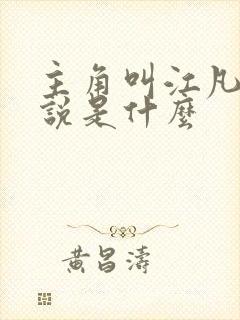 主角叫江凡
說是什麼
黃昌濤